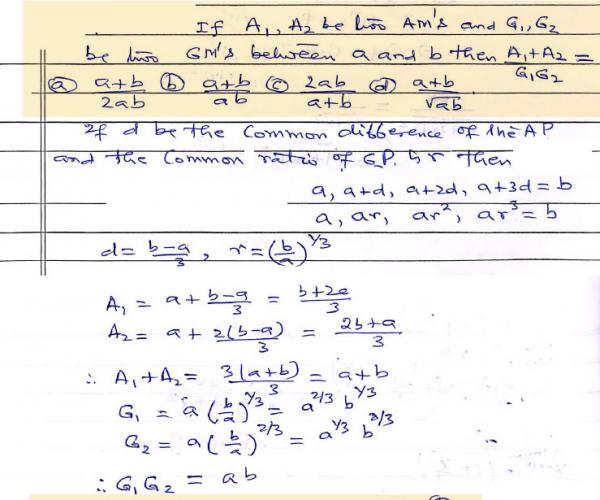 If A₁, A₂ be two AM's and G₁, G₂
be two GM's between a and b then (A₁+A₂)/(G₁G₂) =
(a) (a+b)/(2ab) (b) (a+b)/(ab) (c) (2ab)/(a+b) (d) (a+b)/√(ab).
If d be the Common difference of the AP
and the Common ratio of G.P. is r then
a, a+d, a+2d, a+3d = b
a, ar, ar², ar³ = b
d = (b-a)/3, r = (b/a)^(1/3)
A₁ = a + (b-a)/3 = (b+2a)/3
A₂ = a + 2(b-a)/3 = (2b+a)/3
∴ A₁+A₂ = 3(a+b)/3 = a+b
G₁ = a(b/a)^(1/3) = a^(2/3) b^(1/3)
G₂ = a(b/a)^(2/3) = a^(1/3) b^(2/3)
∴ G₁G₂ = ab